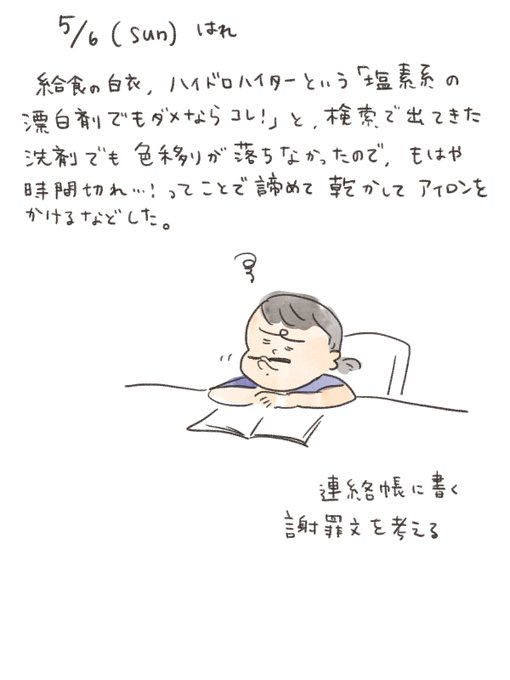 5/6 (sun) はれ
給食の白衣, ハイドロハイターという「塩素系の
漂白剤でもダメならコレ!」と, 検索で出てきた
洗剤でも 色移りが落ちなかったので, もはや
時間切れ…! ってことで諦めて 乾かして アイロンを
かけるなどした。
連絡帳に書く
謝罪文を考える